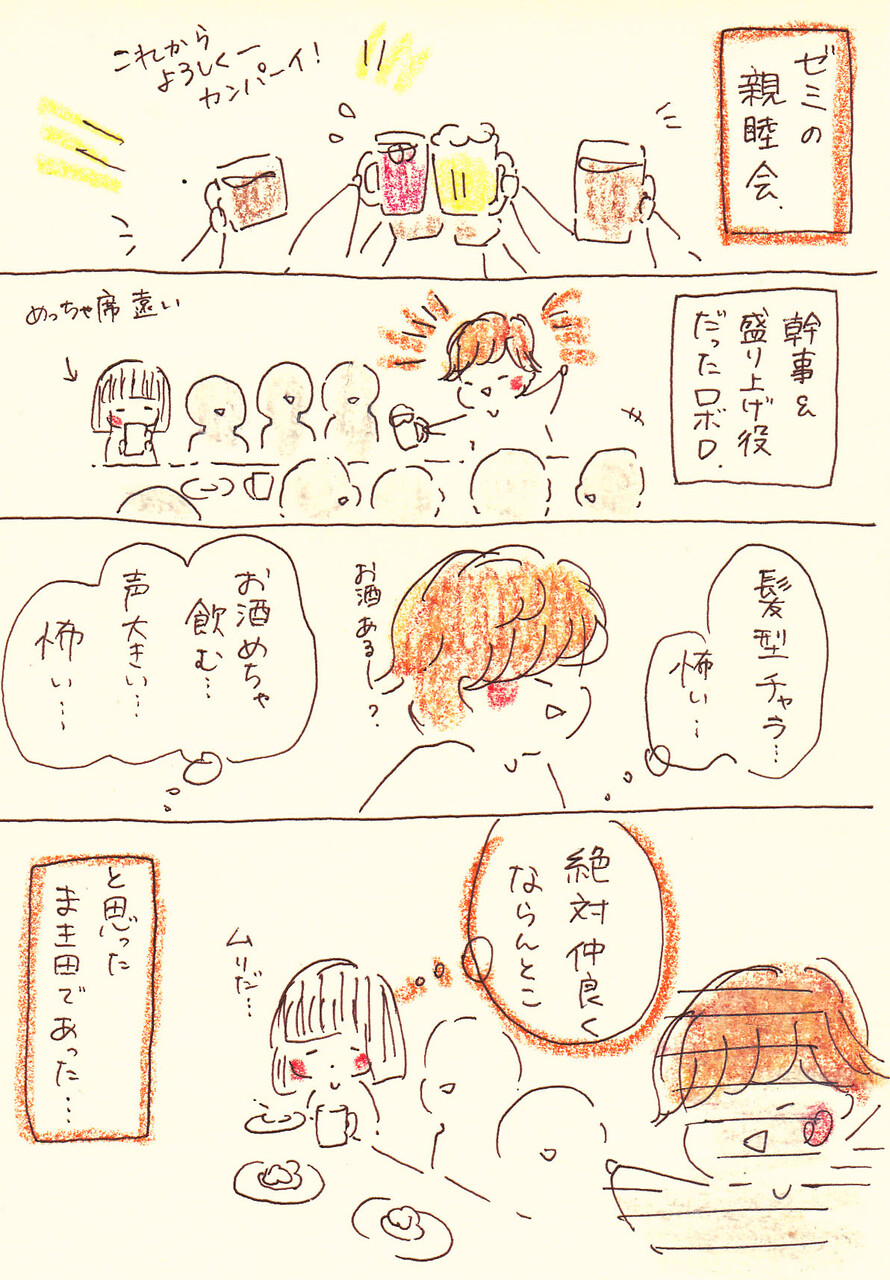 ゼミの
親睦会.
これから
よろしくー
カンパーイ!
幹事&
盛り上げ役
だったロボロ.
めっちゃ席遠い
髪型チャラ…
怖い…
お酒ある〜?
お酒めちゃ
飲む…
声大きい…
怖い…
絶対仲良く
ならんとこ
ムリだ…
と思った
まき田であった…